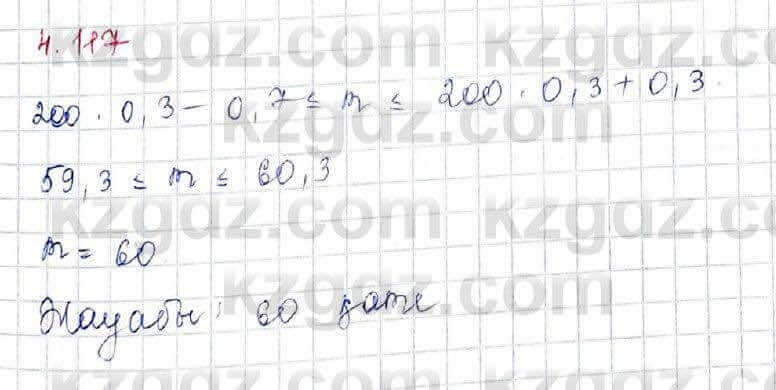 4.117
200 · 0,3 - 0,7 ≤ m ≤ 200 · 0,3 + 0,3
59,3 ≤ m ≤ 60,3
m = 60
Жауабы: 60 дәте
kzgdz.com kzgdz.com
kzgdz.com
kzgdz.com kzgdz.com
kzgdz.com
kzgdz.com kzgdz.com